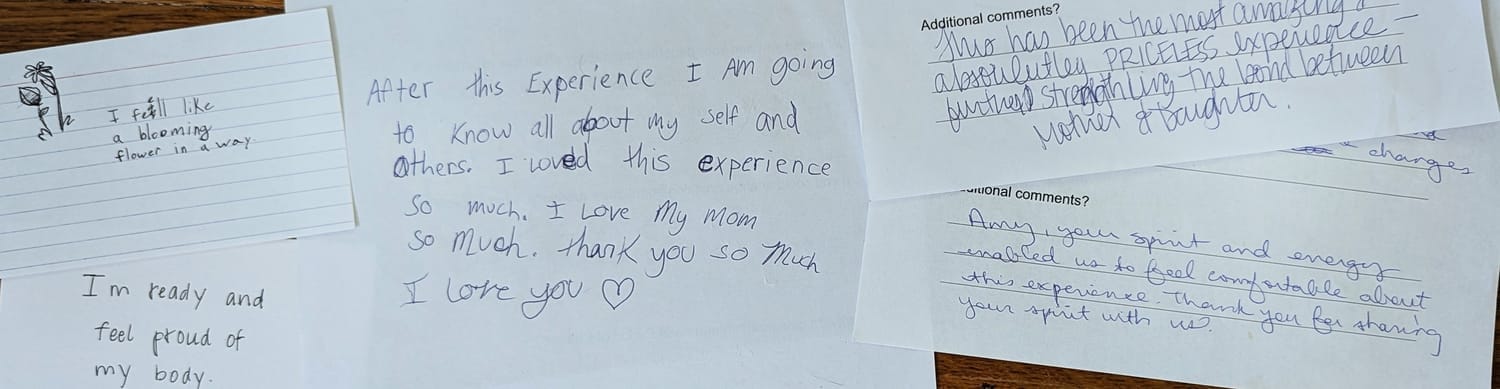 I feell like
a blooming
flower in a way.
I'm ready and
feel proud of
my body.
After this Experience I Am going
to know all about my self and
others. I loved this experience
so much. I Love My Mom
so much. thank you so Much
I love you ♡
Additional comments?
This has been the most amazing &
absoulutley PRICELESS experience –
further strengthing the bond between
Mother & Daughter.
changes
itional comments?
Amy, your spirit and energy
enabled us to feel comfortable about
this experience. Thank you for sharing
your spirit with us.